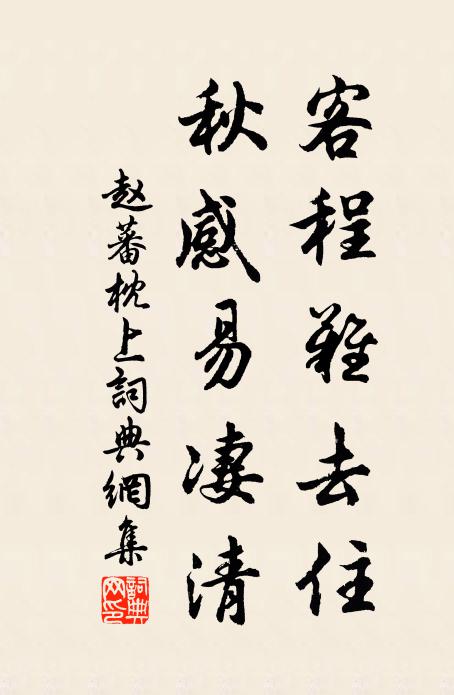 客程難去住
秋感易凄清
赵蕃枕上詞典網集
詞典网印